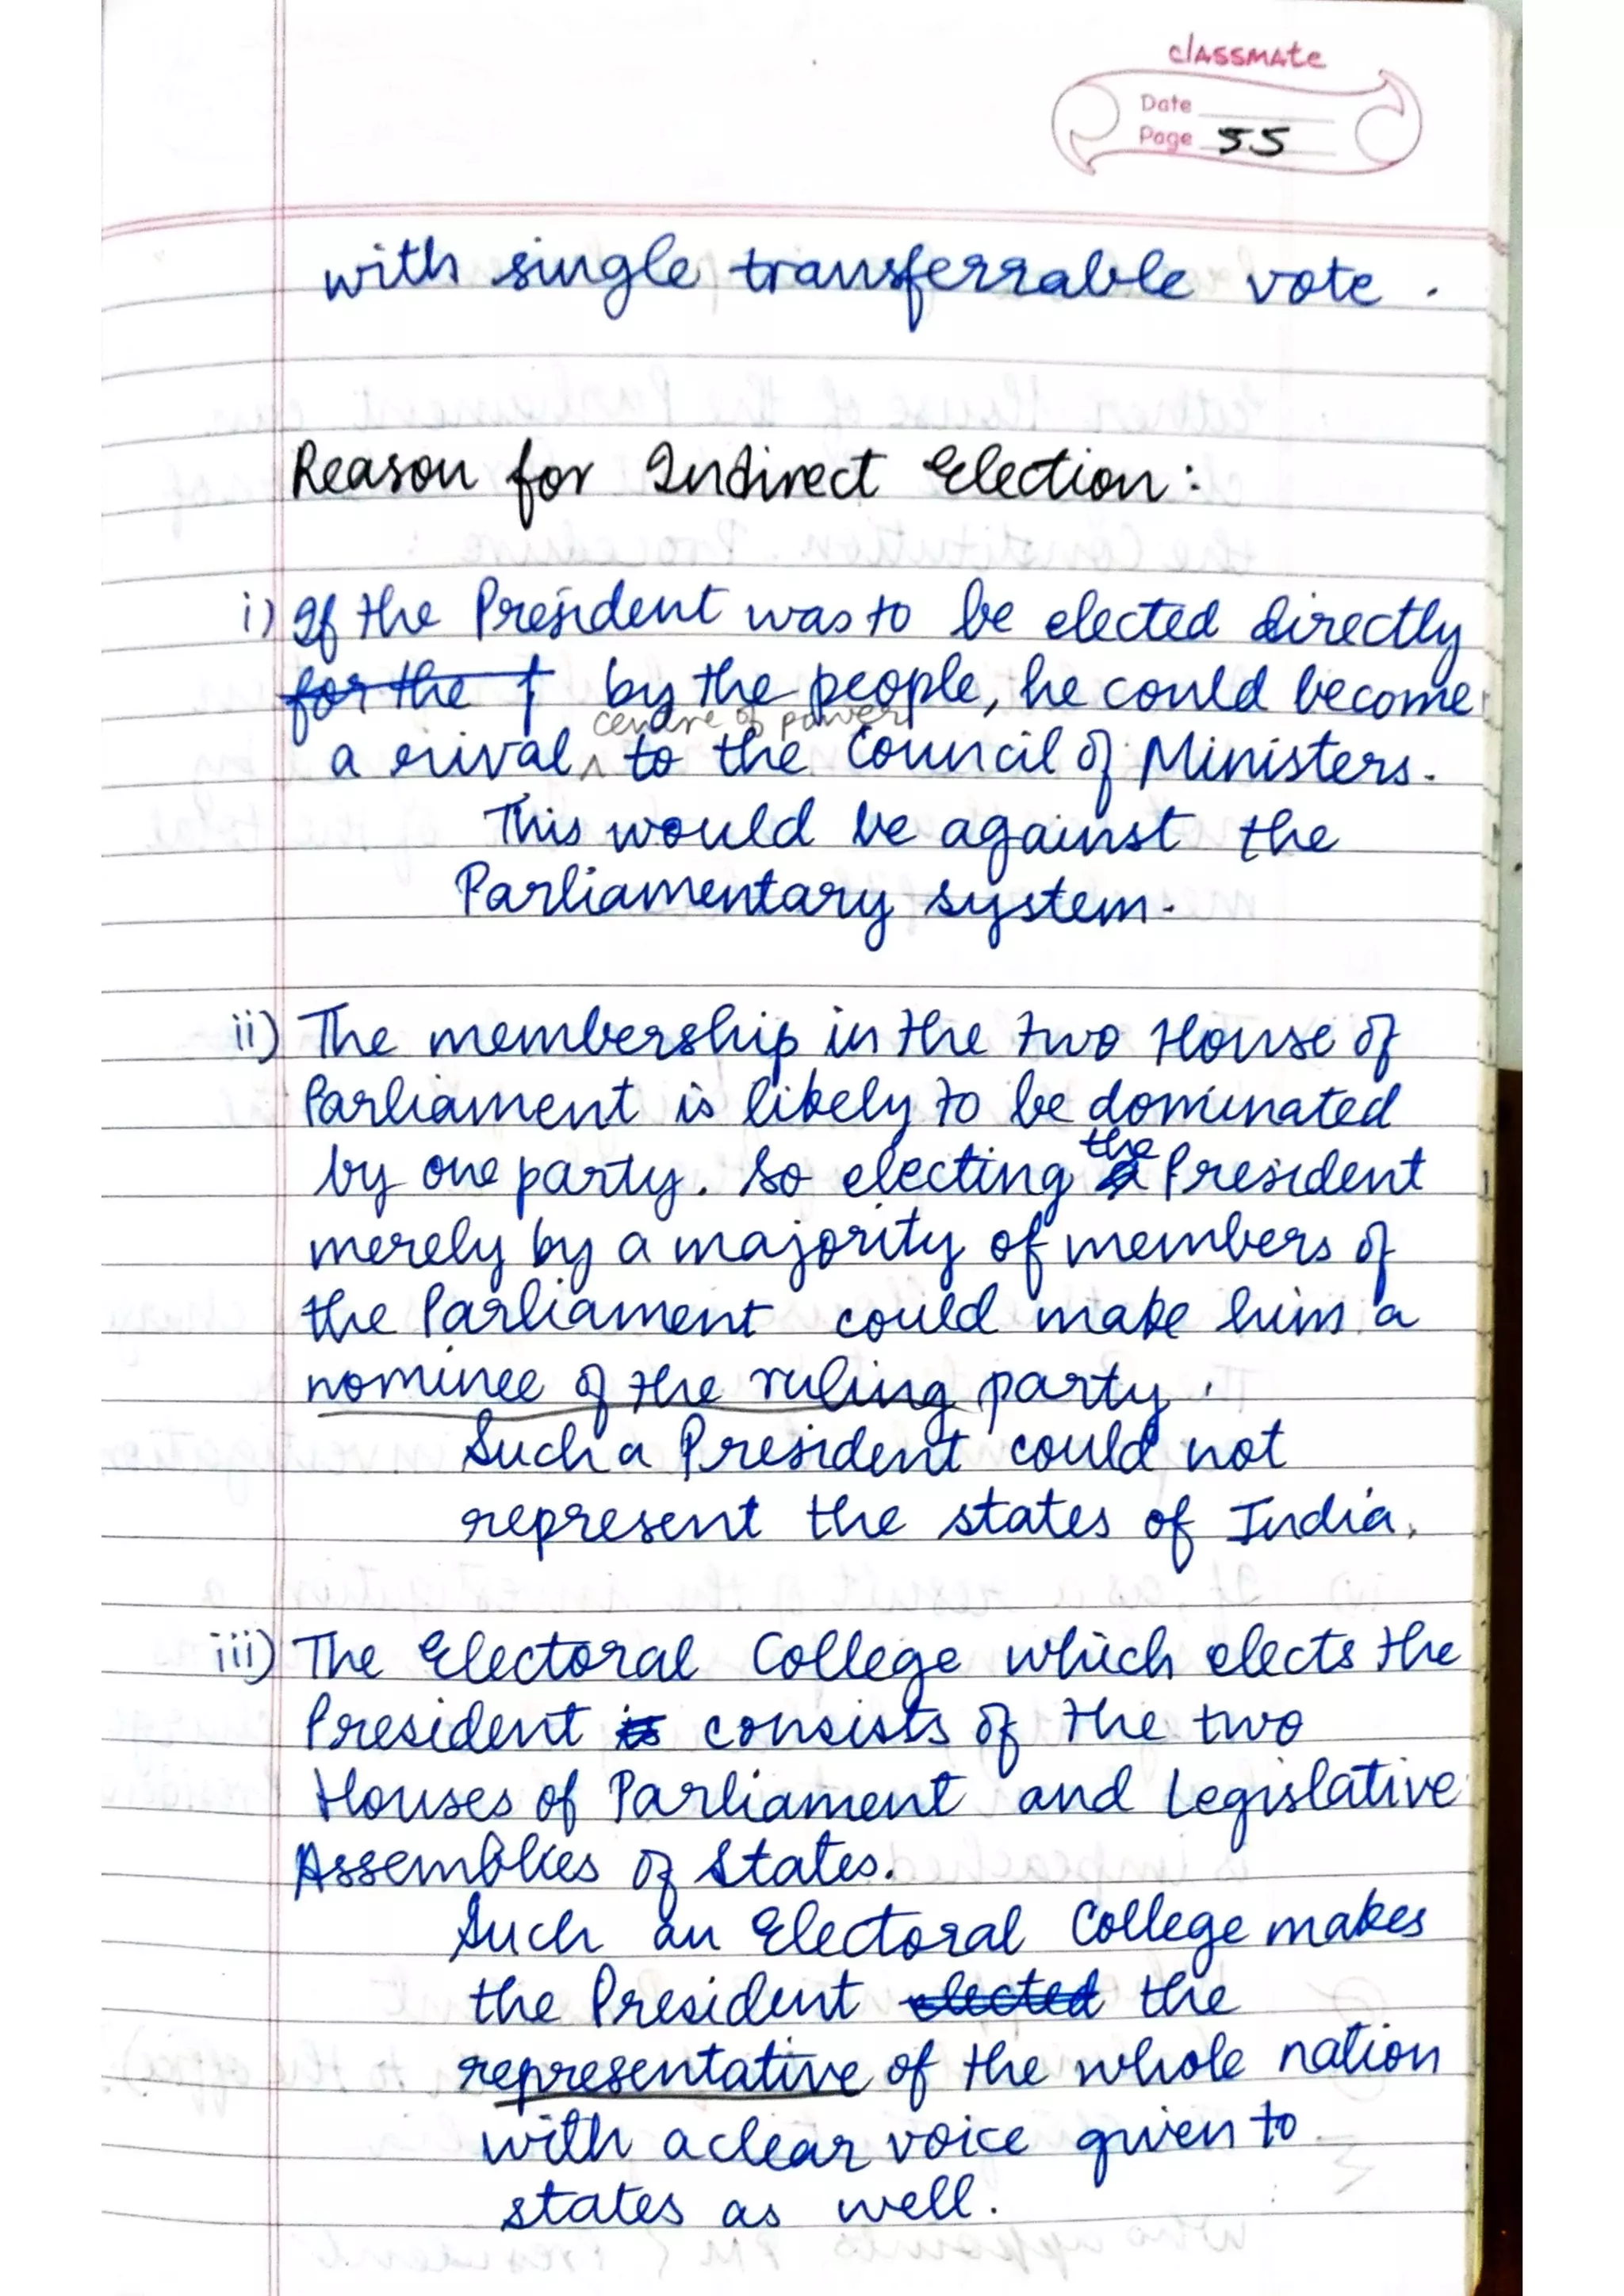 classmate
Date
Page 55
with single transferrable vote.
Reason for Indirect Election:
i) If the President was to be elected directly
for the by the people, he could become
centre of power
a rival to the Council of Ministers.
This would be against the
Parliamentary system.
ii) The membership in the two House of
Parliament is likely to be dominated
by one party. So electing the President
merely by a majority of members of
the Parliament could make him a
nominee of the ruling party.
Such a President could not
represent the states of India.
iii) The Electoral College which elects the
President is consists of the two
Houses of Parliament and Legislative
Assemblies of States.
Such an Electoral College makes
the President elected the
representative of the whole nation
with a clear voice given to
states as well.